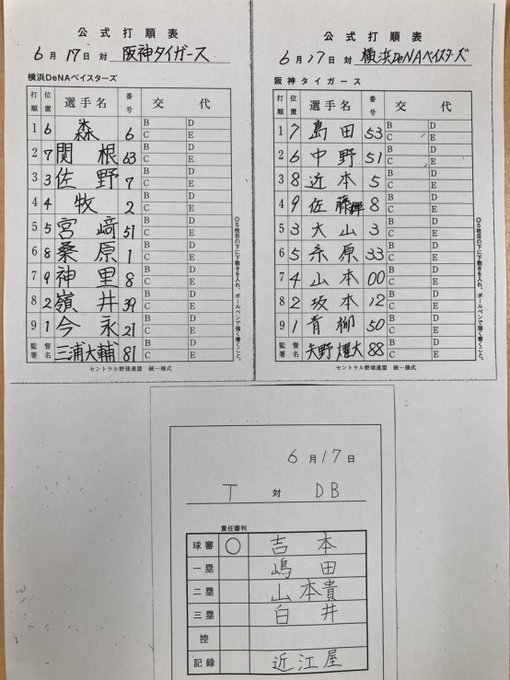 公式打順表
6月17日 対 阪神タイガース
横浜DeNAベイスターズ
打順 位置 選手名 番号 交代
1 6 森 6 B D C E
2 7 関根 63 B D C E
3 3 佐野 7 B D C E
4 4 牧 2 B D C E
5 5 宮﨑 51 B D C E
6 8 桑原 1 B D C E
7 9 神里 8 B D C E
8 2 嶺井 39 B D C E
9 1 今永 21 B D C E
監督署名 三浦大輔 81
セントラル野球連盟 統一様式
◎5枚目の下に下敷きを入れ、ボールペンで強く書くこと。
公式打順表
6月17日 対 横浜DeNAベイスターズ
阪神タイガース
打順 位置 選手名 番号 交代
1 7 島田 53 B D C E
2 6 中野 51 B D C E
3 8 近本 5 B D C E
4 9 佐藤輝 8 B D C E
5 3 大山 3 B D C E
6 5 糸原 33 B D C E
7 4 山本 00 B D C E
8 2 坂本 12 B D C E
9 1 青柳 50 B D C E
監督署名 矢野燿大 88
セントラル野球連盟 統一様式
◎5枚目の下に下敷きを入れ、ボールペンで強く書くこと。
6月17日
T 対 DB
責任審判
球審 〇 吉本
一塁 嶋田
二塁 山本貴
三塁 白井
控
記録 近江屋